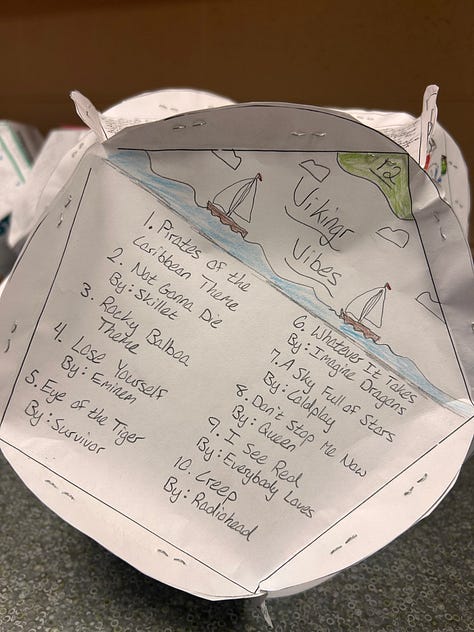 12
Vikings
Vibes
1. Pirates of the
Caribbean Theme
2. Not Gonna Die
By: Skillet
3. Rocky Balboa
Theme
4. Lose Yourself
By: Eminem
5. Eye of the Tiger
By: Survivor
6. Whatever It Takes
By: Imagine Dragons
7. A Sky Full of Stars
By: Coldplay
8. Don't Stop Me Now
By: Queen
9. I See Red
By: Everybody Loves
10. Creep
By: Radiohead